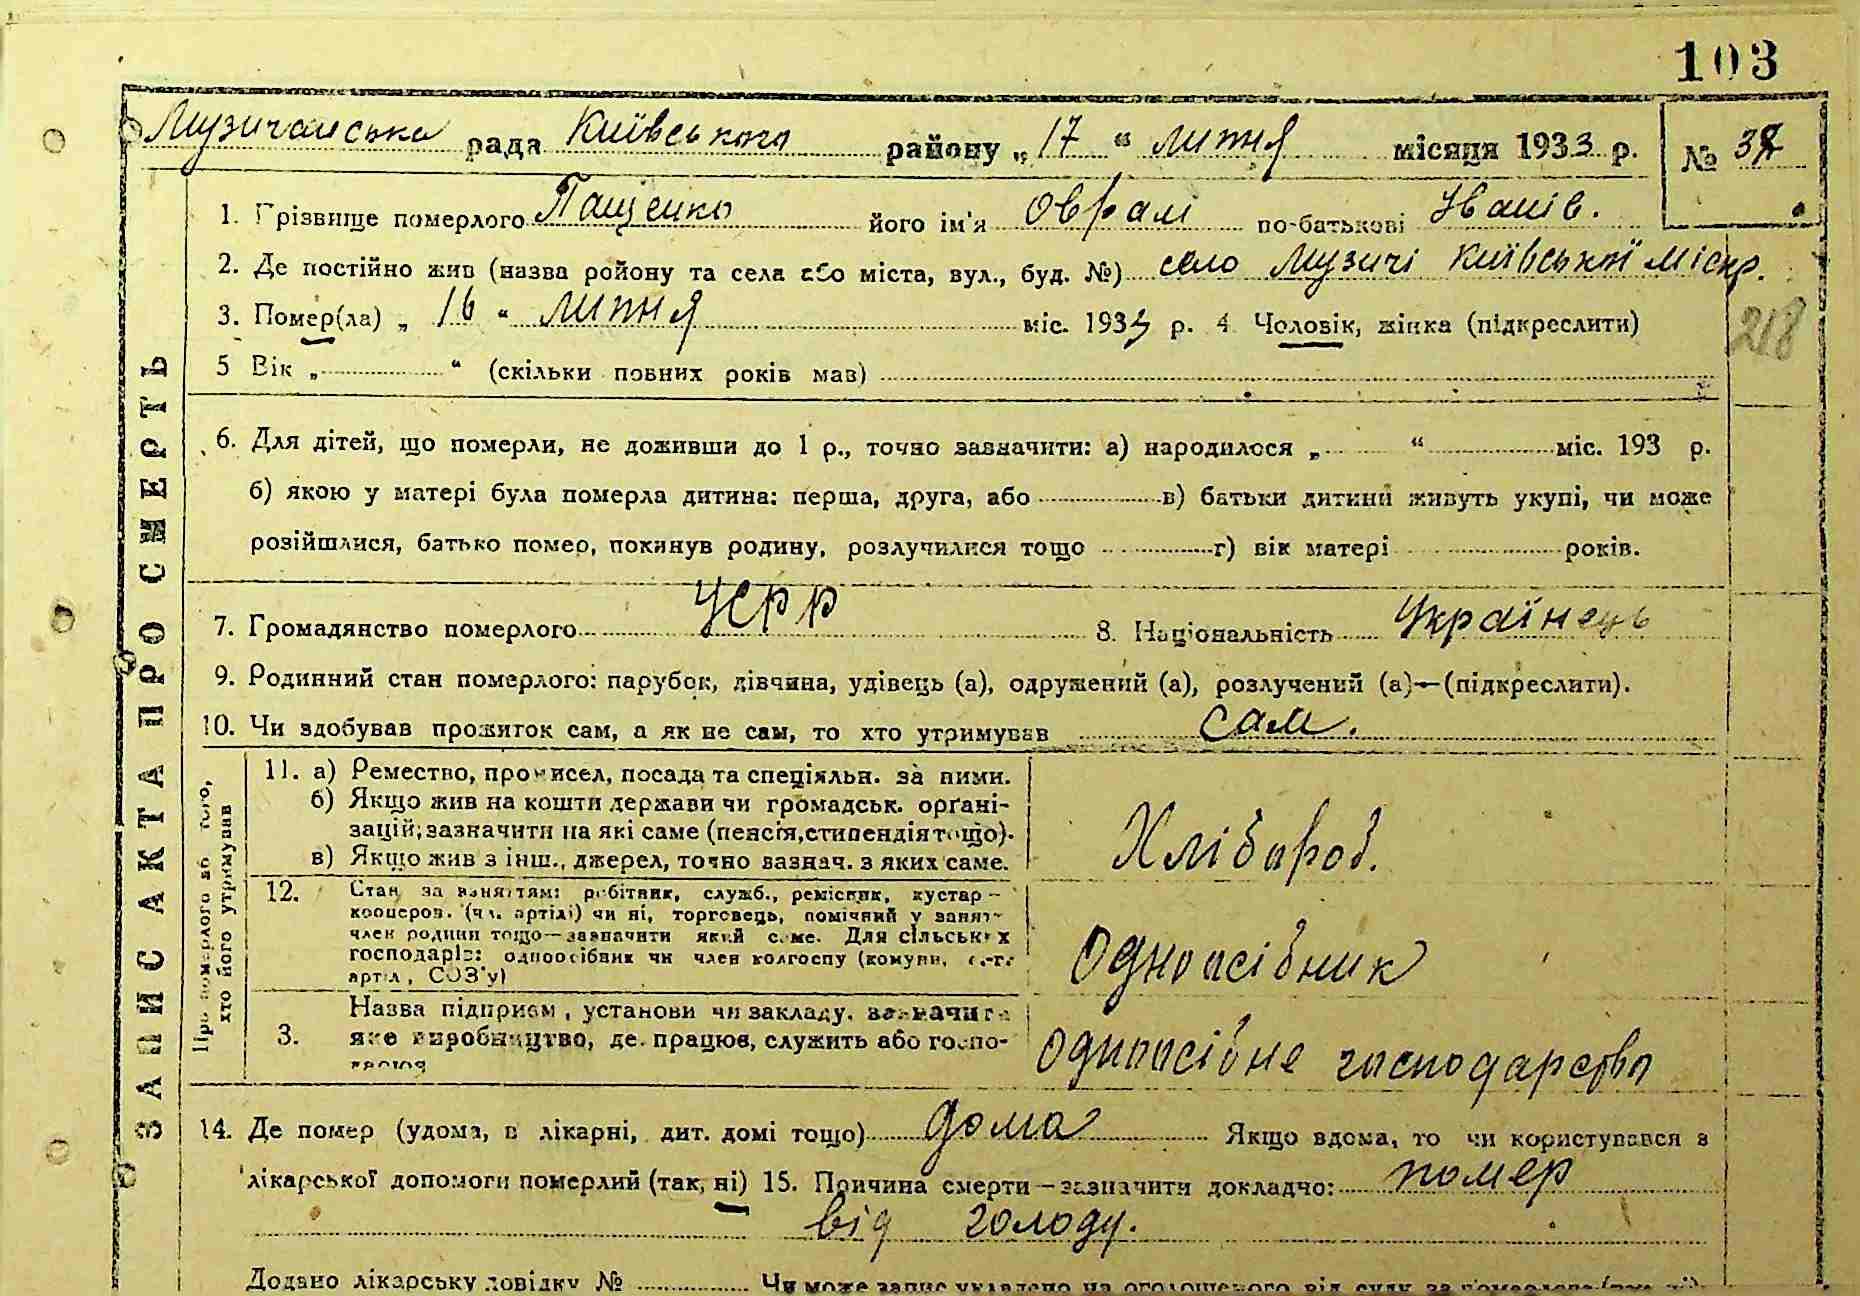 103
Музичанська рада Київського району „17“ липня місяця 1933 р. № 37
1. Грізвище померлого Пащенко його ім'я Оврам по-батькові Іванів.
2. Де постійно жив (назва ройону та села або міста, вул., буд. №) село Музичі Київської міскр.
3. Помер(ла) „16“ липня міс. 1933 р. 4 Чоловік, жінка (підкреслити)
218
5 Вік „ “ (скільки повних років мав)
6. Для дітей, що померли, не доживши до 1 р., точно зазначити: а) народилося „ “ міс. 193 р.
б) якою у матері була померла дитина: перша, друга, або в) батьки дитини живуть укупі, чи може
розійшлися, батько помер, покинув родину, розлучилися тощо г) вік матері років.
7. Громадянство померлого УСРР 8. Національність Українець
9. Родинний стан померлого: парубок, дівчина, удівець (а), одружений (а), розлучений (а)—(підкреслити).
10. Чи здобував прожиток сам, а як не сам, то хто утримував сам.
ЗАПИС АКТА ПРО СМЕРТЬ
Про померлого або того,
хто його утримував
11. а) Ремество, промисел, посада та спеціяльн. за ними.
б) Якщо жив на кошти держави чи громадськ. органі-
зацій, зазначити на які саме (пенсія, стипендія тощо).
в) Якщо жив з інш., джерел, точно вазнач. з яких саме.
Хлібороб.
12. Стан за заняттям: робітник, служб., ремісник, кустар—
кооперов. (чл. артілі) чи ні, торговець, помічний у занят-
член родини тощо—зазначити який саме. Для сільських
господарів: одноосібник чи член колгоспу (комуни, с.-г.
артіл, СОЗ'у)
Одноосібник
3. Назва підприєм, установи чи закладу, зазначити
яке виробництво, де працює, служить або госпо-
Одноосібне господарство
14. Де помер (удома, в лікарні, дит. домі тощо) дома Якщо вдома, то чи користувався з
лікарської допомоги померлий (так, ні) 15. Причина смерти—зазначити докладно: помер
від голоду.
Додано лікарську довідку № Чи може запис укладено на оголошеного від суду за померлого